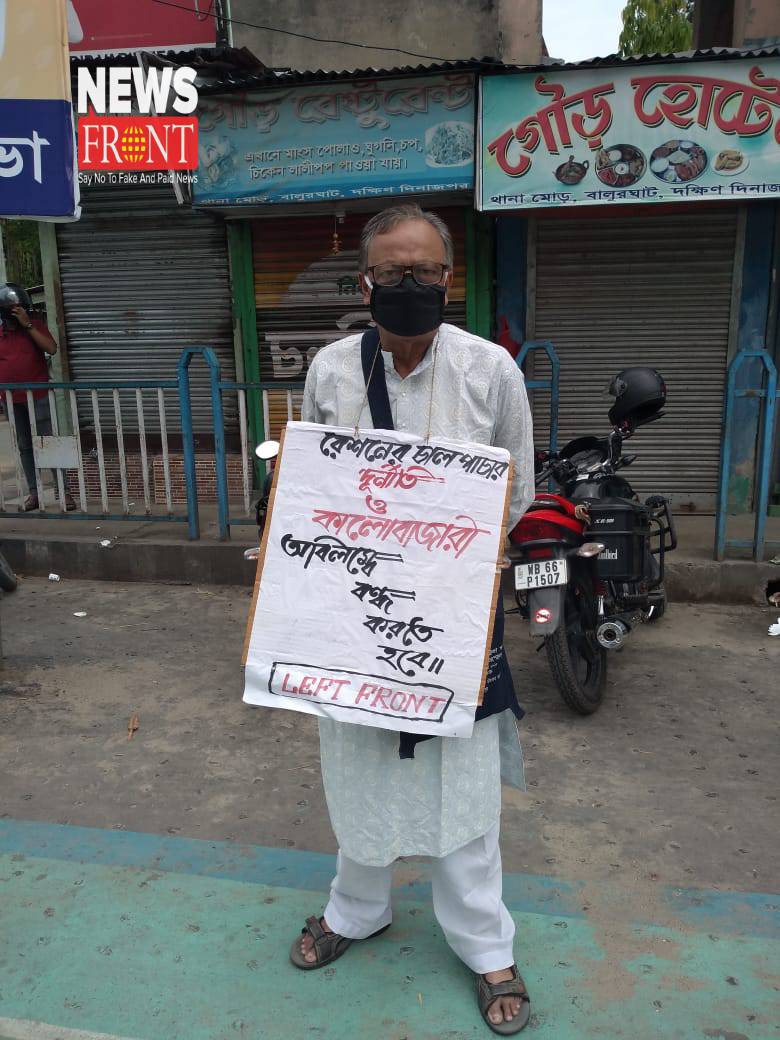 NEWS
FRONT
Say No To Fake And Paid News
ভা
গৌড় রেস্টুরেন্ট
এখানে মাংস পোলাও, ঘুগনি, চপ,
চিকেন ললীপপ পাওয়া যায়।
থানা মোড়, বালুরঘাট, দক্ষিণ দিনাজপুর
গৌড় হোটে
থানা মোড়, বালুরঘাট, দক্ষিণ দিনাজ
রেশনের চাল পাচার
দূর্নীতি
ও
কালোবাজারী
অবিলম্বে
বন্ধ
করতে
হবে॥
LEFT FRONT
WB 66
P1507